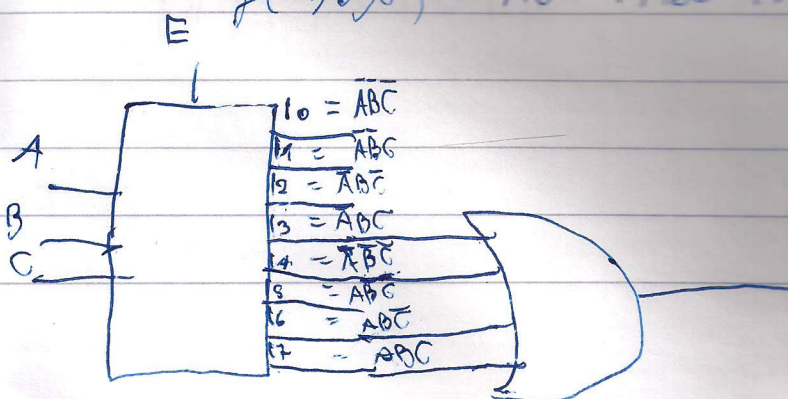 E
A
B
C
I0 = A̅B̅C̅
I1 = A̅B̅C
I2 = A̅BC̅
I3 = A̅BC
I4 = A̅B̅C̅
I5 = AB̅C
I6 = ABC̅
I7 = ABC